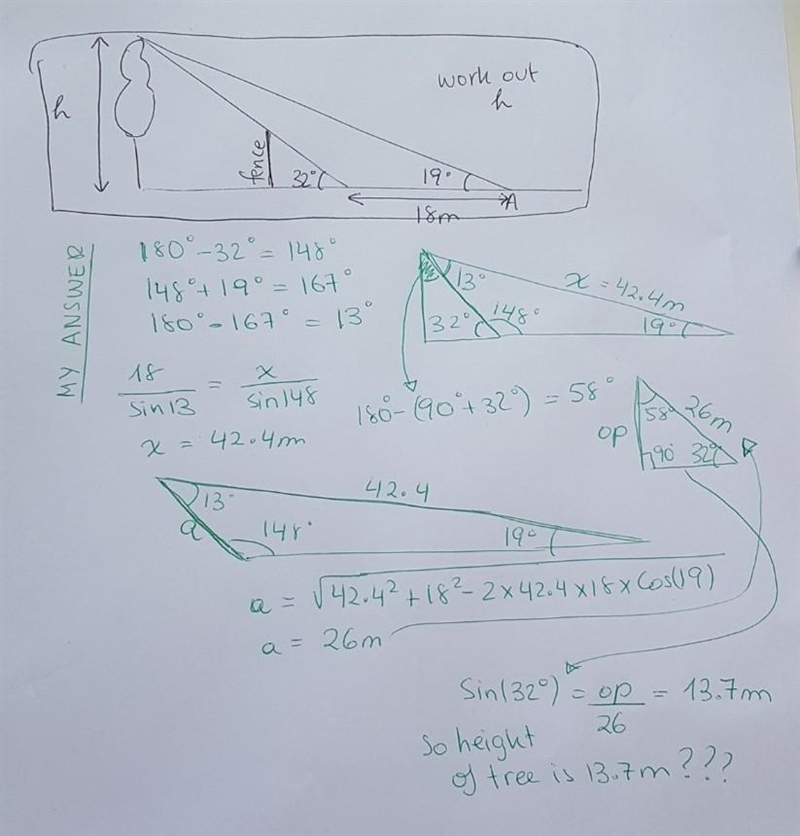 h
work out
h
fence
32°
19°
A
18m
MY ANSWER
180° - 32° = 148°
148° + 19° = 167°
180° - 167° = 13°
13°
x = 42.4m
32°
148°
19°
18/sin13 = x/sin148
x = 42.4m
180° - (90° + 32°) = 58°
58°
26m
op
90°
32°
13°
42.4
a
148°
19°
a = √42.4² + 18² - 2×42.4×18×Cos(19)
a = 26m
Sin(32°) = op/26 = 13.7m
So height
of tree is 13.7m???